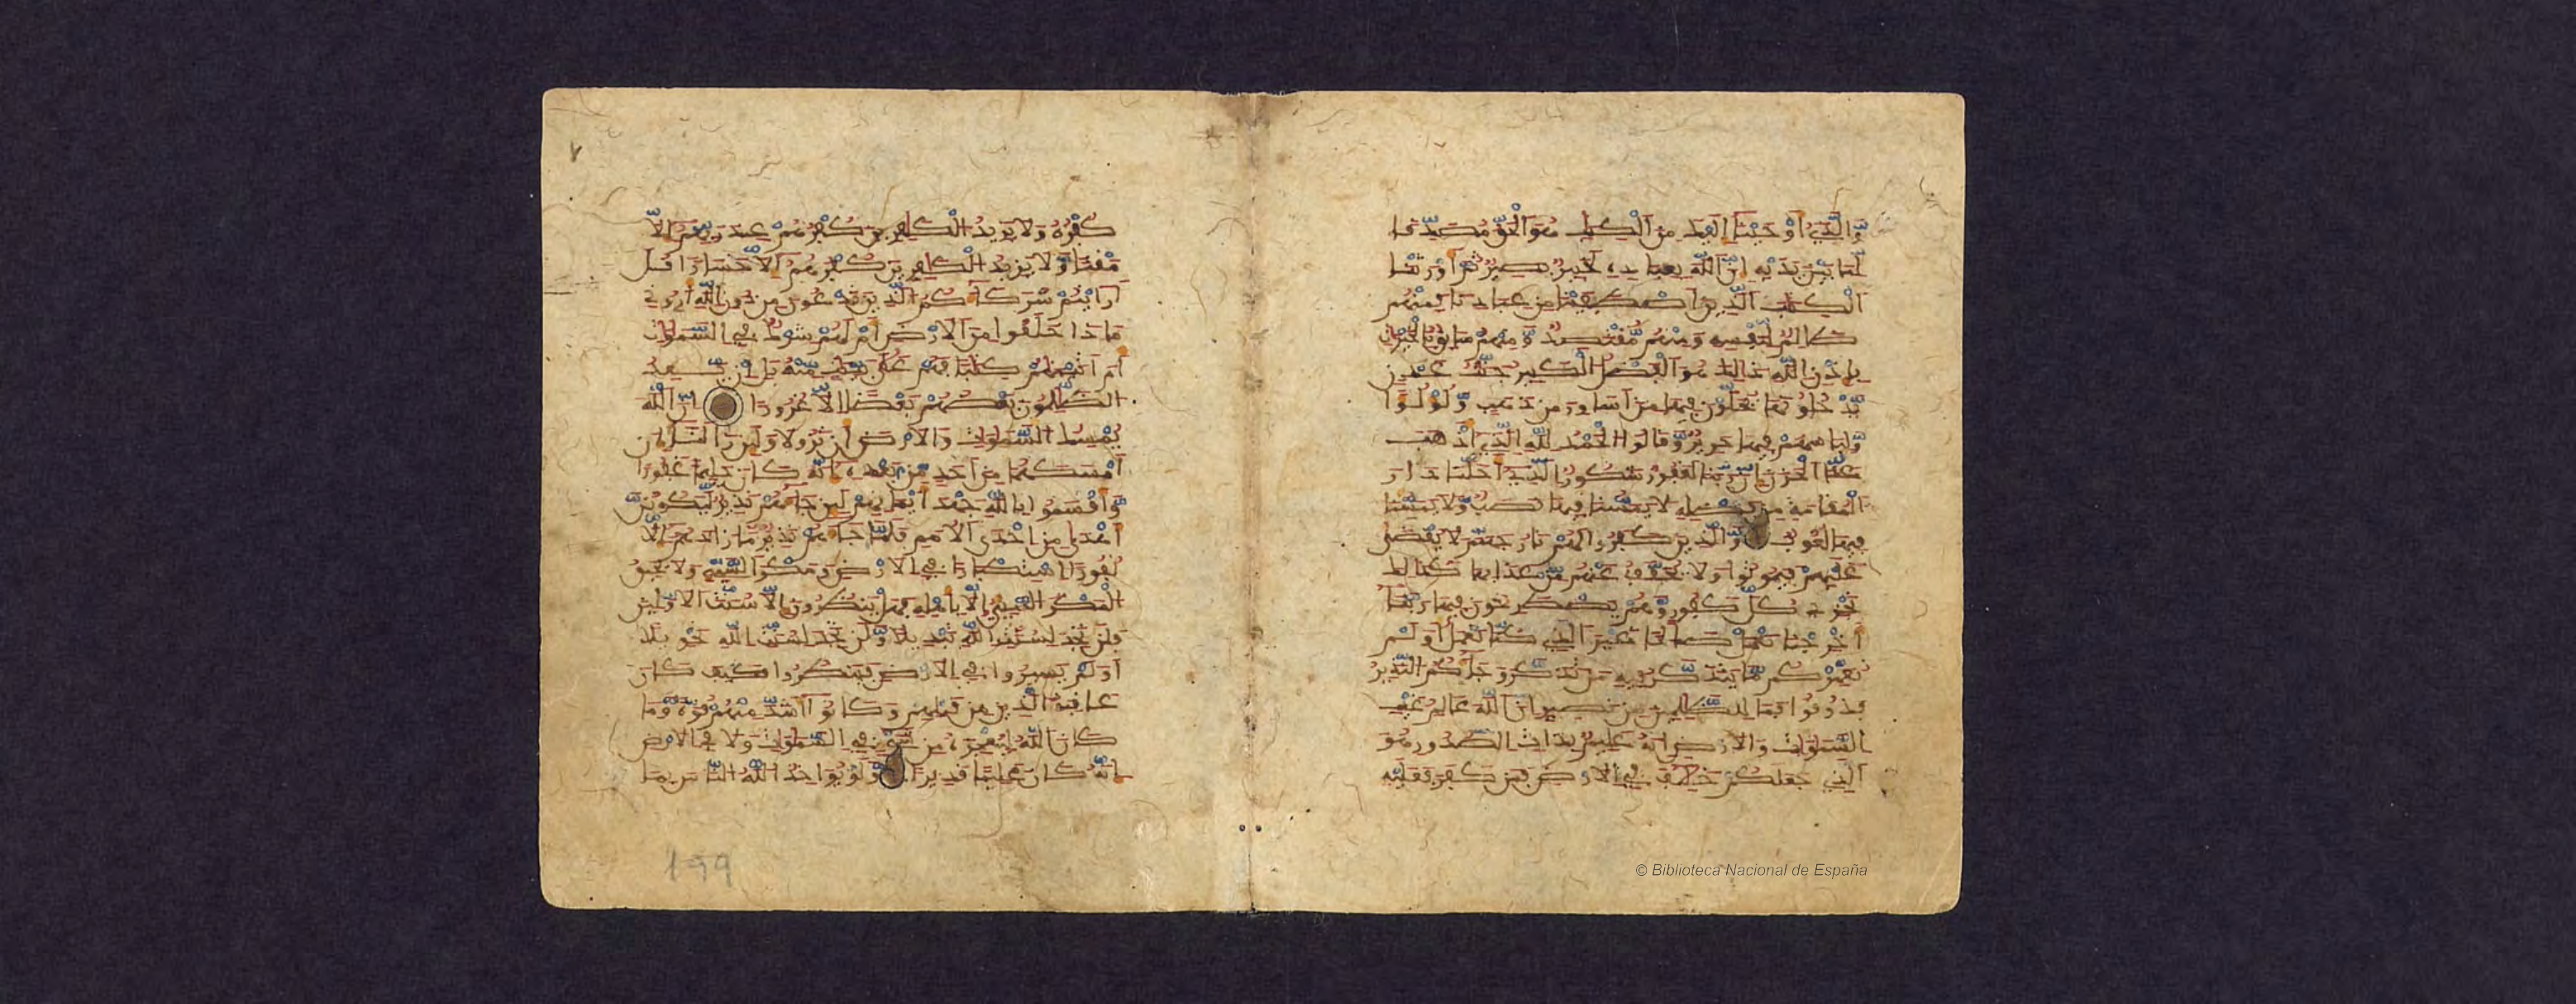 وَالَّذِي أَوْحَيْنَا إِلَيْكَ مِنَ الْكِتَٰبِ هُوَ الْحَقُّ مُصَدِّقًا
لِّمَا بَيْنَ يَدَيْهِ إِنَّ اللَّهَ بِعِبَادِهِ لَخَبِيرٌ بَصِيرٌ ثُمَّ أَوْرَثْنَا
الْكِتَٰبَ الَّذِينَ اصْطَفَيْنَا مِنْ عِبَادِنَا فَمِنْهُمْ
ظَالِمٌ لِّنَفْسِهِ وَمِنْهُم مُّقْتَصِدٌ وَمِنْهُمْ سَابِقٌ بِالْخَيْرَٰتِ
بِإِذْنِ اللَّهِ ذَٰلِكَ هُوَ الْفَضْلُ الْكَبِيرُ جَنَّٰتُ عَدْنٍ
يَدْخُلُونَهَا يُحَلَّوْنَ فِيهَا مِنْ أَسَاوِرَ مِن ذَهَبٍ وَلُؤْلُؤًا
وَلِبَاسُهُمْ فِيهَا حَرِيرٌ وَقَالُوا الْحَمْدُ لِلَّهِ الَّذِي أَذْهَبَ
عَنَّا الْحَزَنَ إِنَّ رَبَّنَا لَغَفُورٌ شَكُورٌ الَّذِي أَحَلَّنَا دَارَ
الْمُقَامَةِ مِن فَضْلِهِ لَا يَمَسُّنَا فِيهَا نَصَبٌ وَلَا يَمَسُّنَا
فِيهَا لُغُوبٌ وَالَّذِينَ كَفَرُوا لَهُمْ نَارُ جَهَنَّمَ لَا يُقْضَىٰ
عَلَيْهِمْ فَيَمُوتُوا وَلَا يُخَفَّفُ عَنْهُم مِّنْ عَذَابِهَا كَذَٰلِكَ
نَجْزِي كُلَّ كَفُورٍ وَهُمْ يَصْطَرِخُونَ فِيهَا رَبَّنَا
أَخْرِجْنَا نَعْمَلْ صَٰلِحًا غَيْرَ الَّذِي كُنَّا نَعْمَلُ أَوَلَمْ
نُعَمِّرْكُم مَّا يَتَذَكَّرُ فِيهِ مَن تَذَكَّرَ وَجَاءَكُمُ النَّذِيرُ
فَذُوقُوا فَمَا لِلظَّٰلِمِينَ مِن نَّصِيرٍ إِنَّ اللَّهَ عَٰلِمُ غَيْبِ
السَّمَٰوَٰتِ وَالْأَرْضِ إِنَّهُ عَلِيمٌ بِذَاتِ الصُّدُورِ هُوَ
الَّذِي جَعَلَكُمْ خَلَٰئِفَ فِي الْأَرْضِ فَمَن كَفَرَ فَعَلَيْهِ
كُفْرُهُ وَلَا يَزِيدُ الْكَٰفِرِينَ كُفْرُهُمْ عِندَ رَبِّهِمْ إِلَّا
مَقْتًا وَلَا يَزِيدُ الْكَٰفِرِينَ كُفْرُهُمْ إِلَّا خَسَارًا قُلْ
أَرَأَيْتُمْ شُرَكَاءَكُمُ الَّذِينَ تَدْعُونَ مِن دُونِ اللَّهِ أَرُونِي
مَاذَا خَلَقُوا مِنَ الْأَرْضِ أَمْ لَهُمْ شِرْكٌ فِي السَّمَٰوَٰتِ
أَمْ آتَيْنَٰهُمْ كِتَٰبًا فَهُمْ عَلَىٰ بَيِّنَٰتٍ مِّنْهُ بَلْ إِن يَعِدُ
الظَّٰلِمُونَ بَعْضُهُم بَعْضًا إِلَّا غُرُورًا إِنَّ اللَّهَ
يُمْسِكُ السَّمَٰوَٰتِ وَالْأَرْضَ أَن تَزُولَا وَلَئِن زَالَتَا إِنْ
أَمْسَكَهُمَا مِنْ أَحَدٍ مِّن بَعْدِهِ إِنَّهُ كَانَ حَلِيمًا غَفُورًا
وَأَقْسَمُوا بِاللَّهِ جَهْدَ أَيْمَٰنِهِمْ لَئِن جَاءَهُمْ نَذِيرٌ لَّيَكُونُنَّ
أَهْدَىٰ مِنْ إِحْدَى الْأُمَمِ فَلَمَّا جَاءَهُمْ نَذِيرٌ مَّا زَادَهُمْ إِلَّا
نُفُورًا اسْتِكْبَارًا فِي الْأَرْضِ وَمَكْرَ السَّيِّئِ وَلَا يَحِيقُ
الْمَكْرُ السَّيِّئُ إِلَّا بِأَهْلِهِ فَهَلْ يَنظُرُونَ إِلَّا سُنَّتَ الْأَوَّلِينَ
فَلَن تَجِدَ لِسُنَّتِ اللَّهِ تَبْدِيلًا وَلَن تَجِدَ لِسُنَّتِ اللَّهِ تَحْوِيلًا
أَوَلَمْ يَسِيرُوا فِي الْأَرْضِ فَيَنظُرُوا كَيْفَ كَانَ
عَٰقِبَةُ الَّذِينَ مِن قَبْلِهِمْ وَكَانُوا أَشَدَّ مِنْهُمْ قُوَّةً وَمَا
كَانَ اللَّهُ لِيُعْجِزَهُ مِن شَيْءٍ فِي السَّمَٰوَٰتِ وَلَا فِي الْأَرْضِ
إِنَّهُ كَانَ عَلِيمًا قَدِيرًا وَلَوْ يُؤَاخِذُ اللَّهُ النَّاسَ بِمَا
199
© Biblioteca Nacional de España